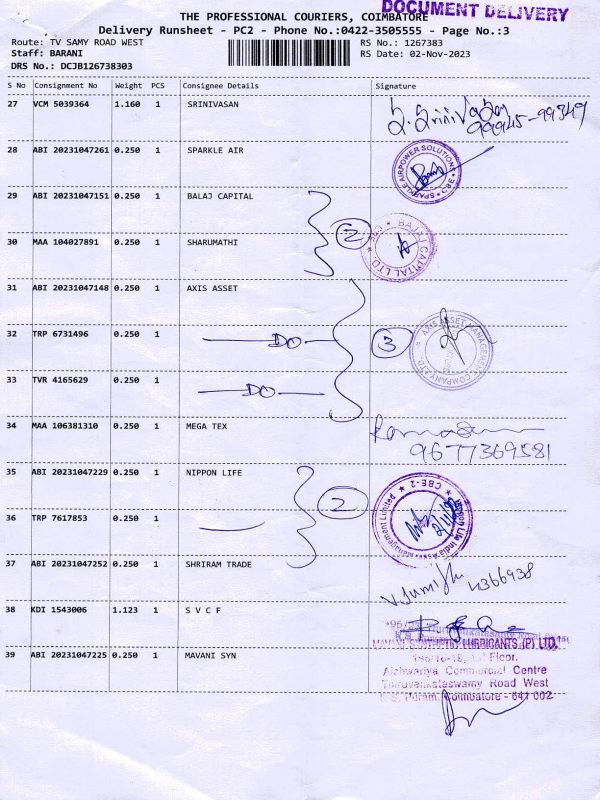 DOCUMENT DELIVERY
THE PROFESSIONAL COURIERS, COIMBATORE
Delivery Runsheet - PC2 - Phone No.:0422-3505555 - Page No.:3
Route: TV SAMY ROAD WEST RS No.: 1267383
Staff: BARANI RS Date: 02-Nov-2023
DRS No.: DCJB126738303
S No Consignment No Weight PCS Consignee Details Signature
27 VCM 5039364 1.160 1 SRINIVASAN
28 ABI 20231047261 0.250 1 SPARKLE AIR
SPARKLE AIRPOWER SOLUTIONS
29 ABI 20231047151 0.250 1 BALAJ CAPITAL
2
BAJAJ CAPITAL LTD. ★ CBE ★
30 MAA 104027891 0.250 1 SHARUMATHI
31 ABI 20231047148 0.250 1 AXIS ASSET
32 TRP 6731496 0.250 1 DO 3
AXIS ASSET MANAGEMENT COMPANY LTD.
33 TVR 4165629 0.250 1 DO
34 MAA 106381310 0.250 1 MEGA TEX
9677369581
35 ABI 20231047229 0.250 1 NIPPON LIFE
2
Nippon Life India Asset Management Limited ★ CBE-2 ★
36 TRP 7617853 0.250 1
37 ABI 20231047252 0.250 1 SHRIRAM TRADE
4366938
38 KDI 1543006 1.123 1 S V C F
LUBRICANTS (P) LTD.
39 ABI 20231047225 0.250 1 MAVANI SYN
Floor.
Aishwariya Commercial Centre
Thiruvenkateswamy Road West
R.S. Puram, Coimbatore - 641 002